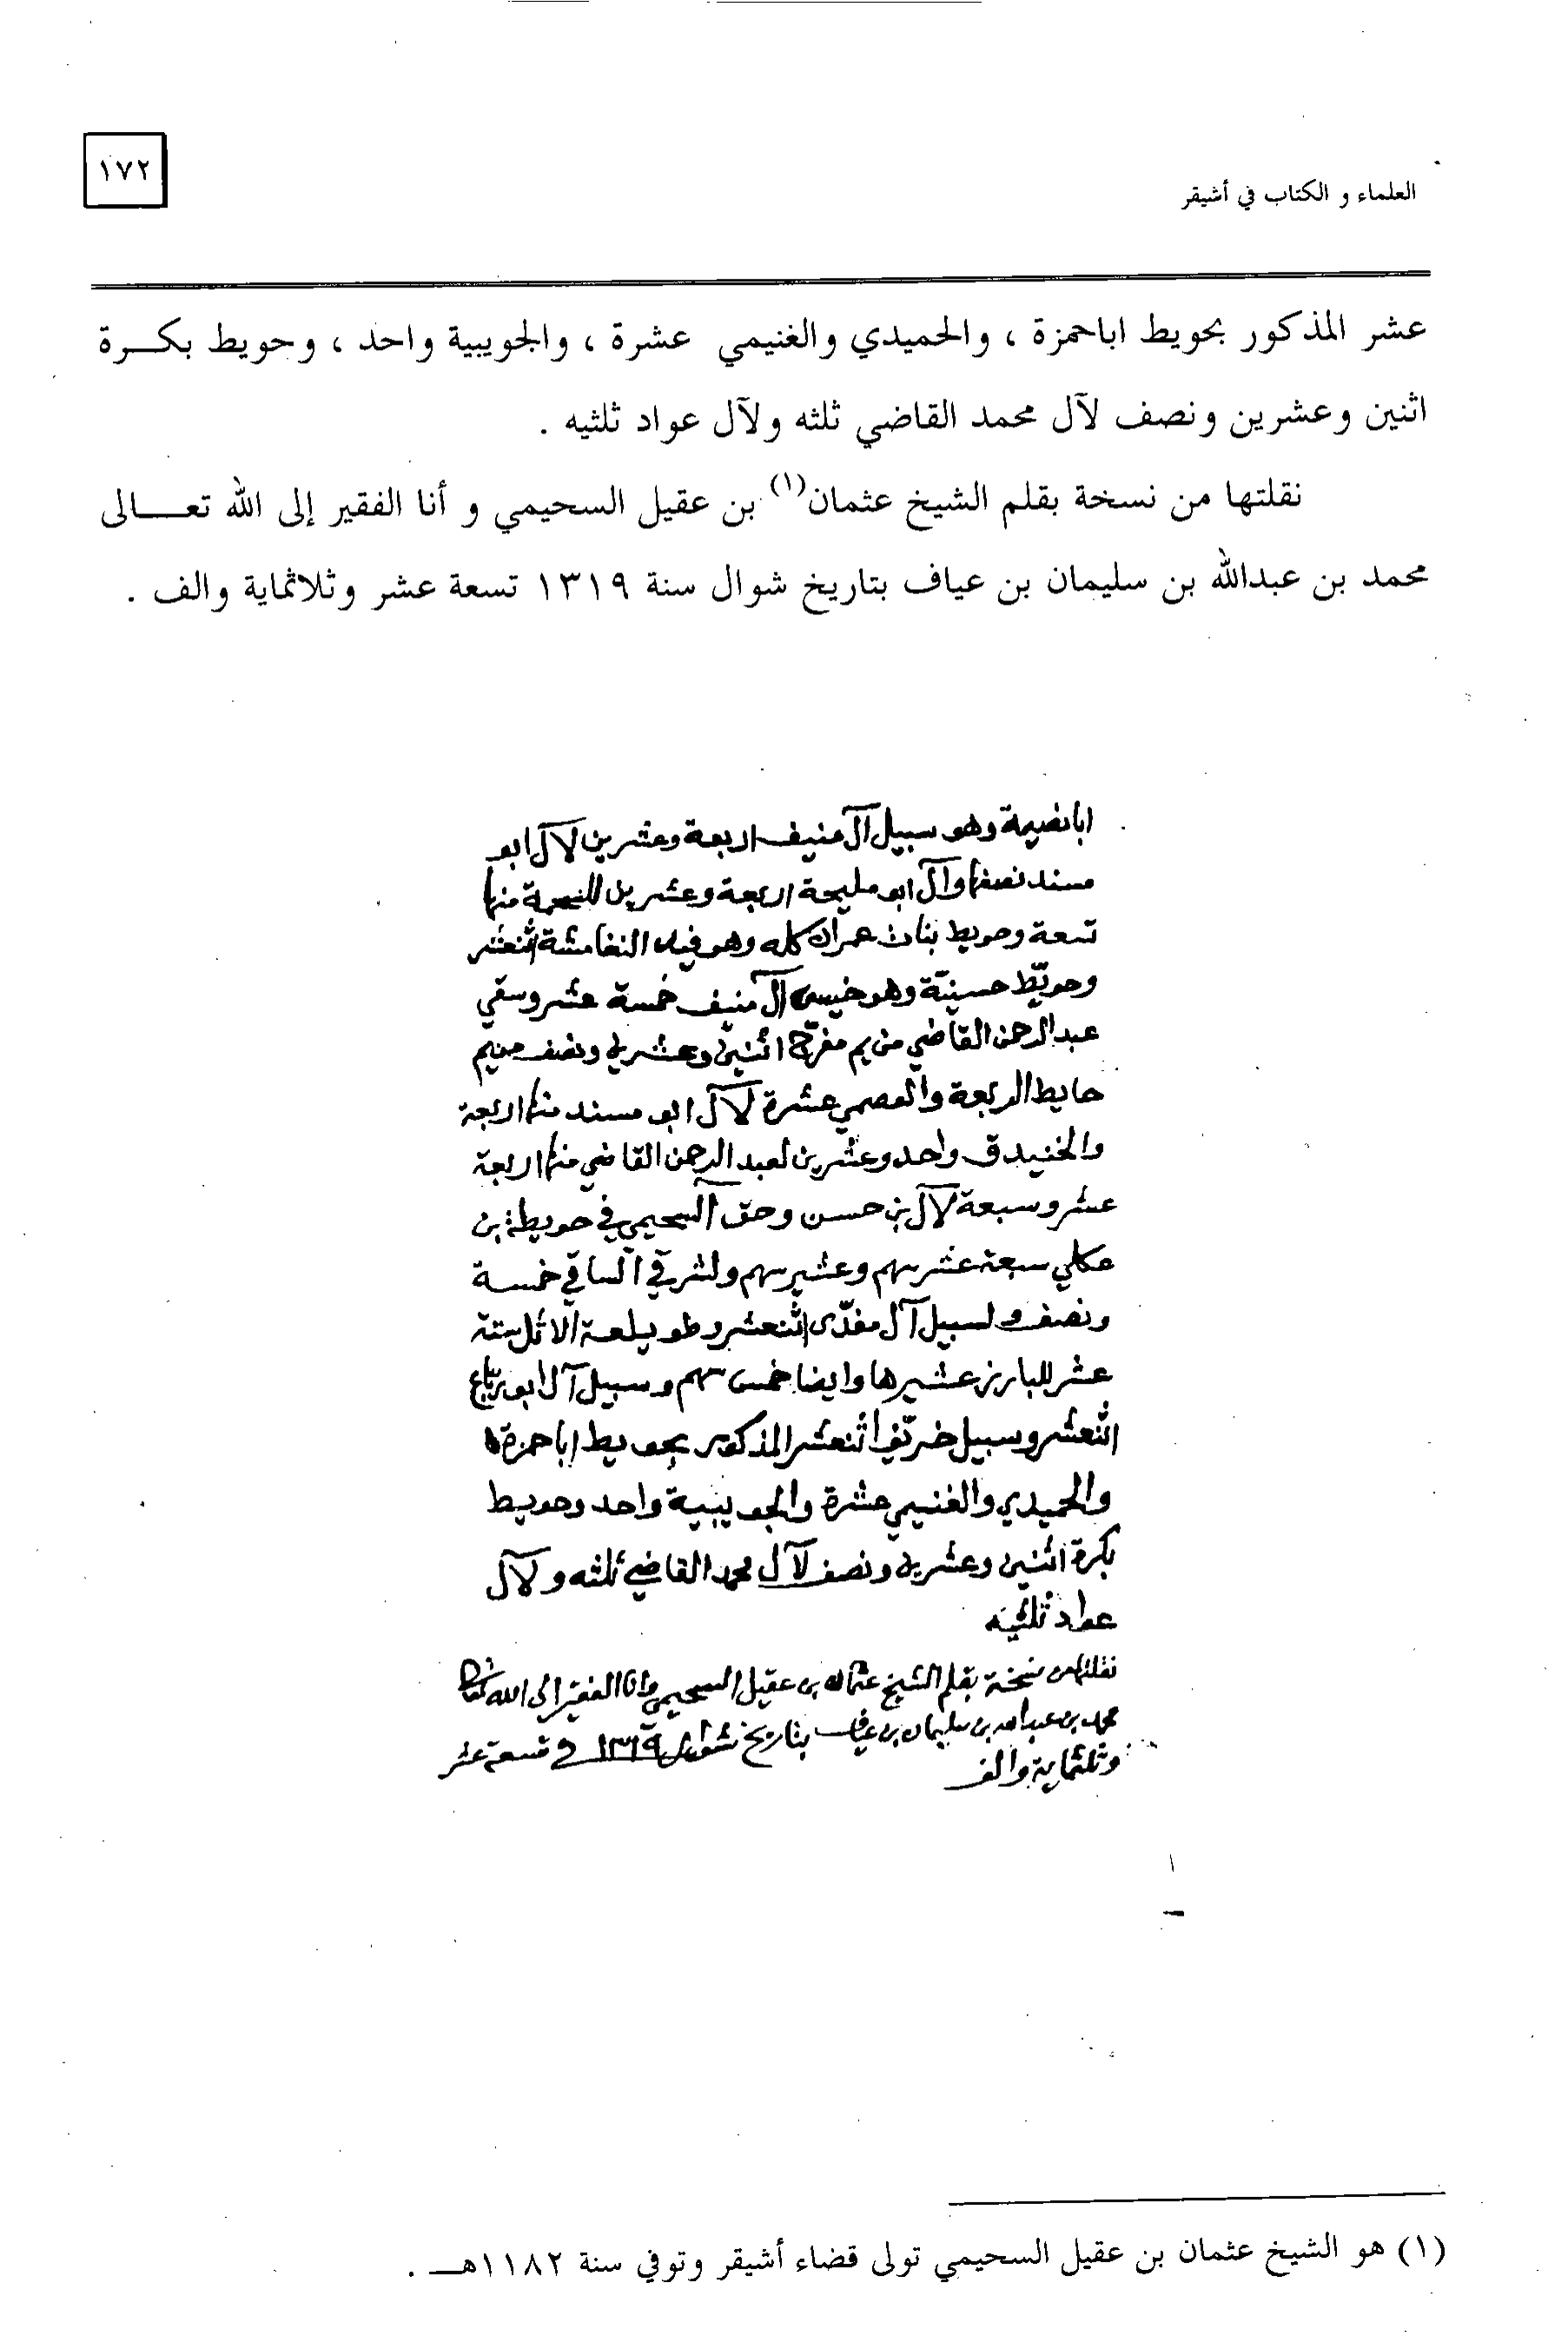 ١٧٢
العلماء و الكتاب في أشيقر
عشر المذكور بحويط اباحمزة ، والحميدي والغنيمي عشرة ، والجويبية واحد ، وحويط بكـــرة
اثنين وعشرين ونصف لآل محمد القاضي ثلثه ولآل عواد ثلثيه .
نقلتها من نسخة بقلم الشيخ عثمان(١) بن عقيل السحيمي و أنا الفقير إلى الله تعـــالى
محمد بن عبدالله بن سليمان بن عياف بتاريخ شوال سنة ١٣١٩ تسعة عشر وثلاثماية والف .
ابا نصيمة وهو سبيل آل منيف اربعة وعشرين لآل ابو
مسند نصفها وآل ابو مليحة اربعة وعشرين منها
تسعة وحويط بنات عمران كله وهو فيد النغامشة اثنعشر
وحويّط حسينة وهو خيس آل منيف خمسة عشر وسقي
عبدالرحمن القاضي من مفرح اثنين وعشرين ونصف
حايط الربعة والعصمي عشرة لآل ابو مسند منها اربعة
والخنيدق واحد وعشرين لعبد الرحمن القاضي منها اربعة
عشر وسبعة لآل بن حسن وحق السحيمي في حويطة بن
عكلي سبعة عشر سهم وعشير سهم ولشرقي الساقي خمسة
ونصف ولسبيل آل مفدّى اثنعشر وطويلعة الاثل ستة
عشر للبارز عشيرها وايضا خمس سهم وسبيل آل ابو رباع
اثنعشر وسبيل اثنعشر المذكور بحويط ابا حمزة
والحميدي والغنيمي عشرة والجويبية واحد وحويط
بكرة اثنين وعشرين ونصف لآل محمد القاضي ثلثه ولآل
عواد ثلثيه
نقلتها من نسخة بقلم الشيخ عثمان بن عقيل السحيمي وانا الفقير الى الله تعالى
محمد بن عبدالله بن سليمان بن عياف بتاريخ شوال ١٣١٩ تسعة عشر
وثلثماية والف
(١) هو الشيخ عثمان بن عقيل السحيمي تولى قضاء أشيقر وتوفي سنة ١١٨٢هـــ .